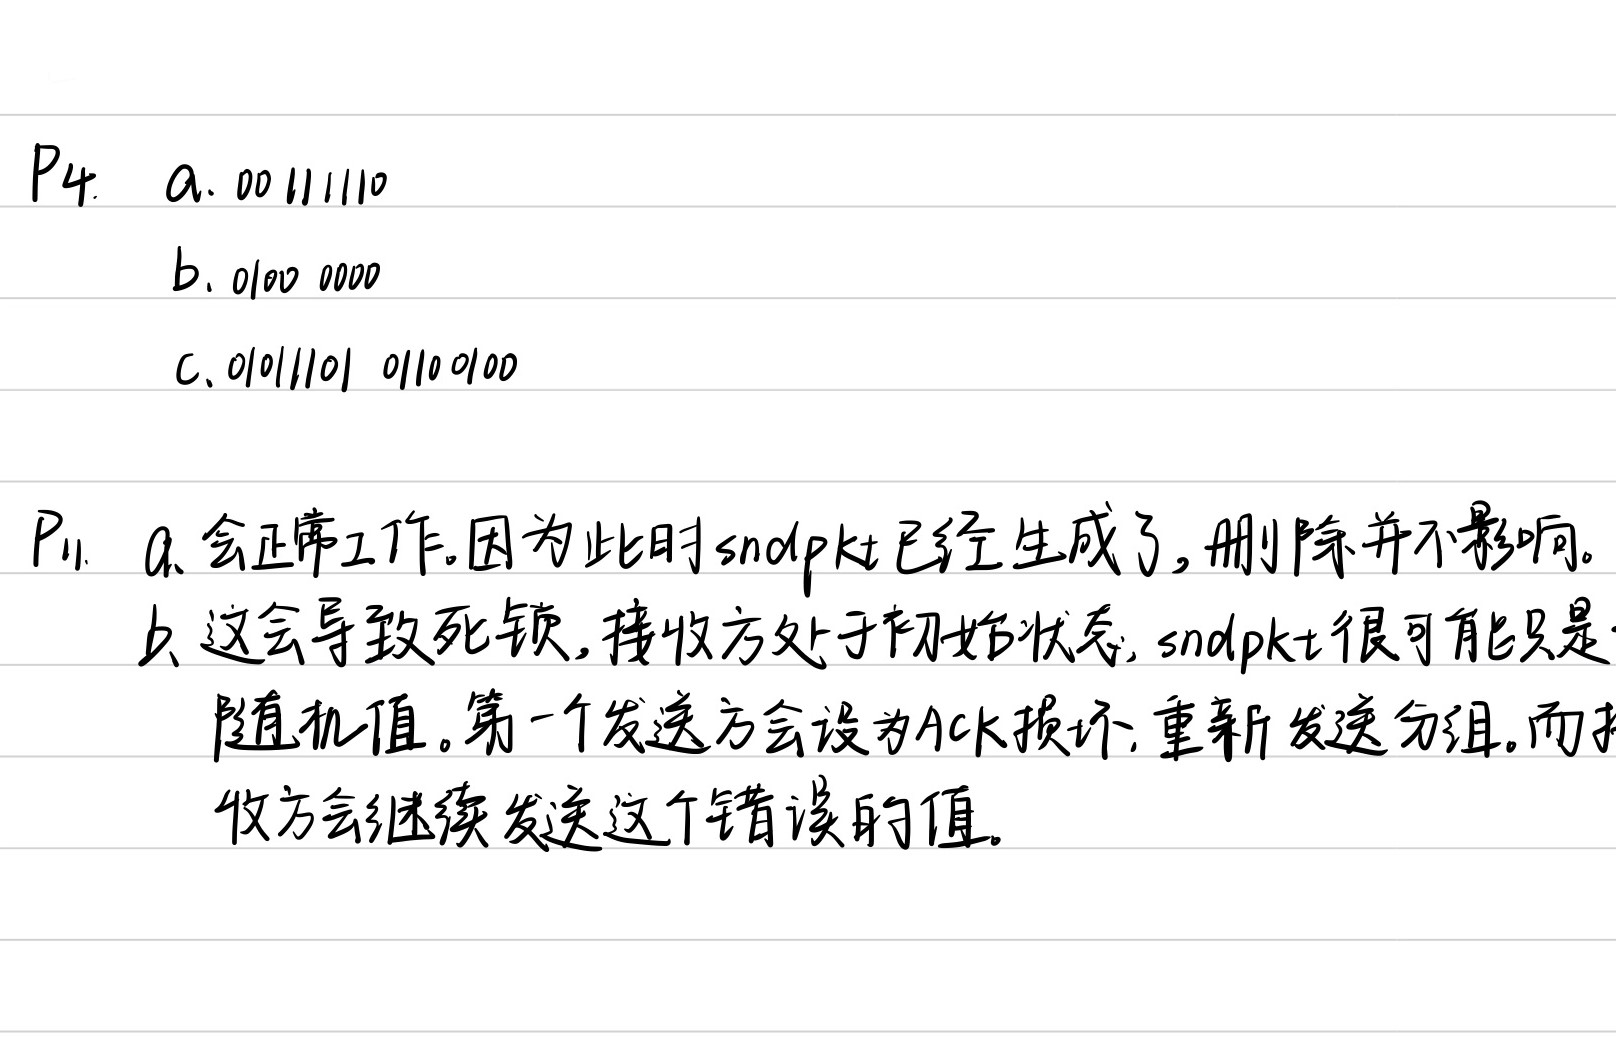 P4. a. 00111110
b. 0100 0000
c. 01011101 01100100
P11. a. 会正常工作。因为此时sndpkt已经生成了,删除并不影响。
b. 这会导致死锁,接收方处于初始状态,sndpkt很可能只是
随机值。第一个发送方会设为ACK损坏,重新发送分组。而
收方会继续发送这个错误的值。